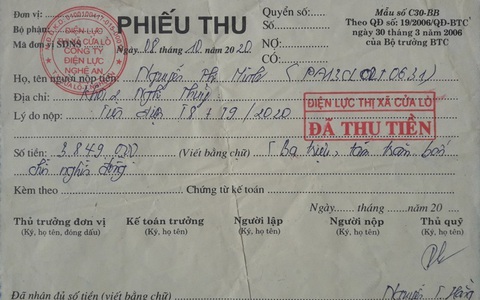 Đơn vị:
Bộ phận:
Mã đơn vị SDNS
ĐIỆN LỰC
CÔNG TY
ĐIỆN LỰC
NGHỆ AN
PHIẾU THU
Ngày 08 tháng 10 năm 20 20
Quyển số:
Số:
NỢ:
CÓ:
Mẫu số C30-BB
Theo QĐ số: 19/2006/QĐ-BTC
ngày 30 tháng 3 năm 2006
của Bộ trưởng BTC
Họ, tên người nộp tiền: Nguyễn Thị Minh
Địa chỉ: Nghi Thủy
Lý do nộp: Tiền điện T8 + T9/2020
ĐIỆN LỰC THỊ XÃ CỬA LÒ
ĐÃ THU TIỀN
Số tiền: 3.849.000 (Viết bằng chữ) Ba triệu, tám trăm bốn
chín nghìn đồng
Kèm theo Chứng từ kế toán
Ngày tháng năm 20
Thủ trưởng đơn vị Kế toán trưởng Người lập Người nộp Thủ quỹ
(Ký, họ tên, đóng dấu) (Ký, họ tên) (Ký, họ tên) (Ký, họ tên) (Ký, họ tên)
Đã nhận đủ số tiền (viết bằng chữ) Nguyễn T Hằng